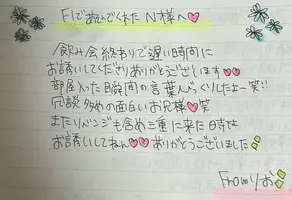 Fでお遊んでくれた N様へ♥
飲み会終わりで遅い時間に
お誘いしてくださりありがとうございます♥♥
部屋入った日瞬間の言葉んっくりしたよー笑
冗談多めの面白いお兄様♥笑
またリベンジも含め三重に来た日時は
お誘いしてねん♥♥ありがとうございました
Fromりお